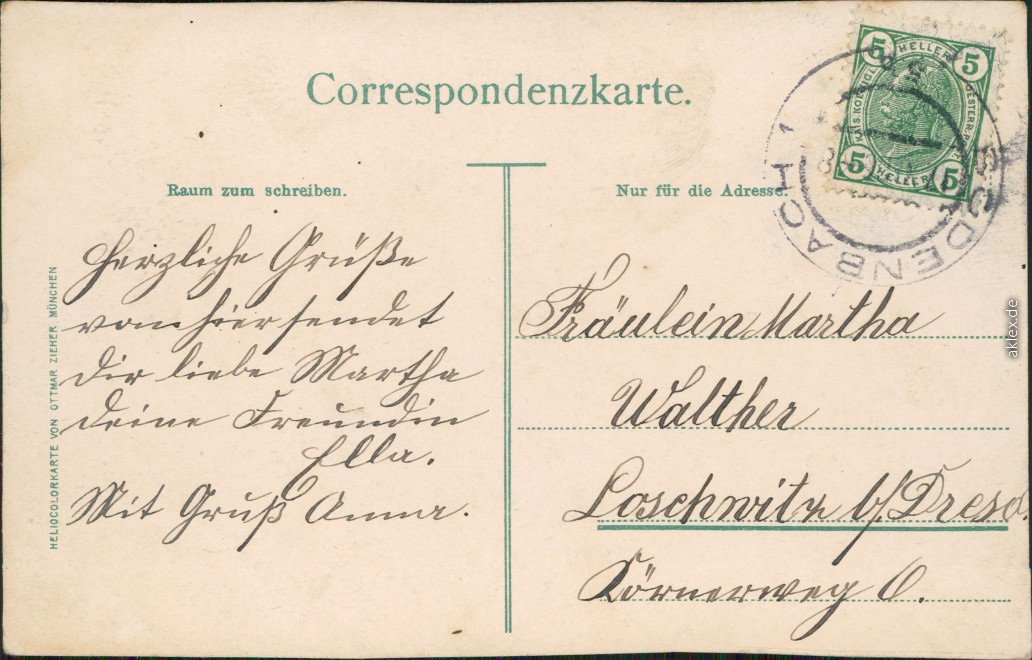 Correspondenzkarte.
Raum zum schreiben.
Herzliche Grüße
von hier sendet
Dir liebe Martha
deine Freundin
Ella.
Mit Gruß Anna.
HELIOCOLORKARTE VON OTTMAR ZIEHER, MÜNCHEN
Nur für die Adresse.
Fräulein Martha
Walther
Loschwitz b/Dresd.
Körnerweg 6.
5 HELLER 5
5 HELLER 5
DENBACH 1
aklex.de